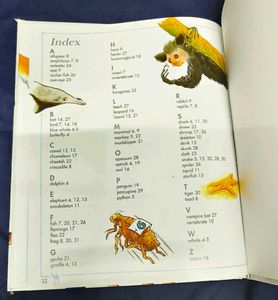 Index
A
alligator 8
amphibian 7, 8
anteater 24
ape 9
archer fish 26
aye-aye 25
B
bat 14, 27
bird 7, 14, 18
blue whale 4-5
butterfly 4
C
camel 12, 13
chameleon 17
cheetah 22
crocodile 8
D
dolphin 6
E
elephant 4, 12, 15
exoskeleton 11
F
fish 7, 20, 21, 26
flamingo 17
flea 22
frog 8, 20, 31
G
gecko 21
giraffe 4, 13
H
hare 9
heron 27
hummingbird 18
I
insect 7
invertebrate 10
K
kangaroo 22
L
leech 27
leopard 16
lizard 15, 21
M
mammal 6, 9
monkey 9, 23
mudskipper 21
O
opossum 28
ostrich 4, 19
owl 16
P
penguin 19
porcupine 29
python 5
R
rabbit 9
reptile 7, 8
S
shark 6, 11, 30
shrew 25
shrimp 17, 26
skeleton 10
skink 15
skunk 28
sloth 23
snake 5, 15, 20, 28, 31
spider 26
squid 11
starfish 15
T
tiger 30
toad 8
V
vampire bat 27
vertebrate 10
W
whale 4-5
Z
zebra 16
32